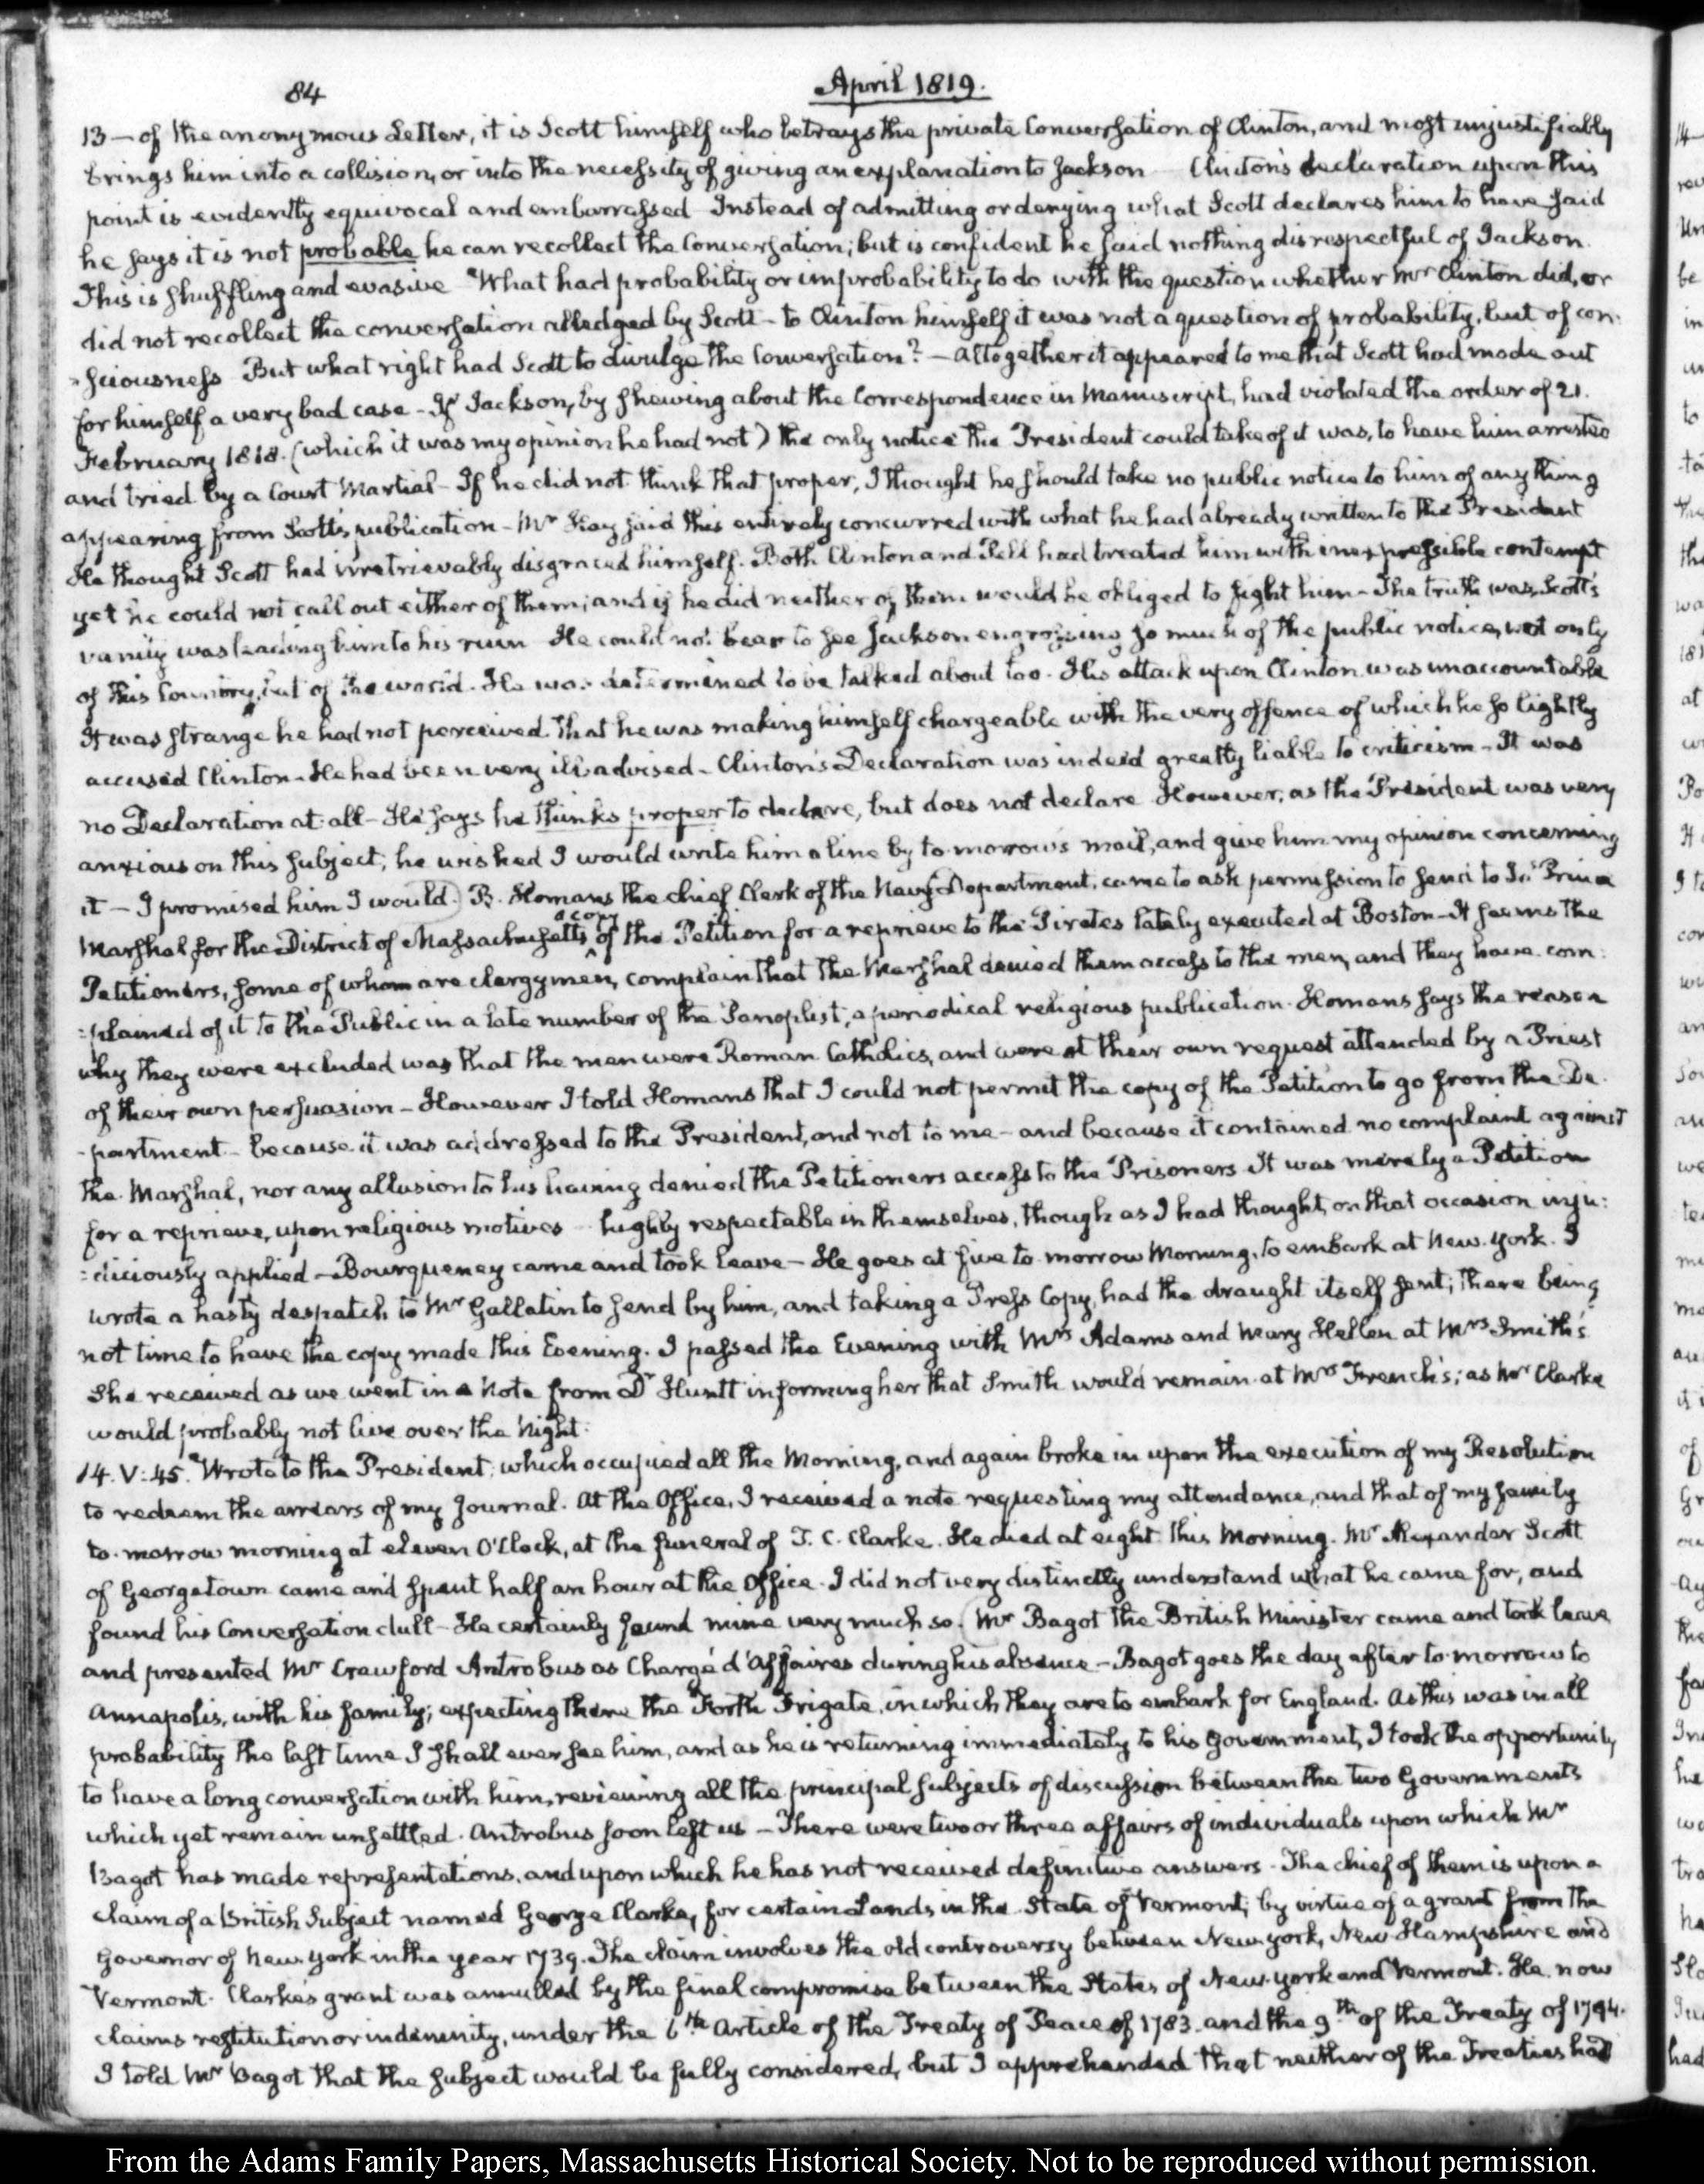 84
April 1819.
13 — of the anonymous Letter, it is Scott himself who betrays the private Conversation of Clinton, and most unjustifiably
brings him into a collision, or into the necessity of giving an explanation to Jackson Clinton's declaration upon this
point is evidently equivocal and embarrassed Instead of admitting or denying what Scott declares him to have said
he says it is not probable he can recollect the Conversation; but is confident he said nothing disrespectful of Jackson.
This is shuffling and evasive What had probability or improbability to do with the question whether Mr Clinton did, or
did not recollect the conversation alledged by Scott - to Clinton himself it was not a question of probability, but of con:
:sciousness But what right had Scott to divulge the Conversation? — Altogether it appeared to me that Scott had made out
for himself a very bad case - If Jackson, by shewing about the Correspondence in Manuscript, had violated the order of 21.
February 1818. (which it was my opinion he had not) the only notice the President could take of it was, to have him arrested
and tried by a Court Martial - If he did not think that proper, I thought he should take no public notice to him of any thing
appearing from Scott's publication - Mr Gay said this entirely concurred with what he had already written to the President
He thought Scott had irretrievably disgraced himself. Both Clinton and had treated him with inexpressible contempt
yet he could not call out either of them; and if he did neither of them would be obliged to fight him - The truth was, Scott's
vanity was leading him to his ruin He could not bear to see Jackson engrossing so much of the public notice, not only
of this Country, but of the world. He was determined to be talked about too. His attack upon Clinton was unaccountable
It was strange he had not perceived that he was making himself chargeable with the very offence of which he so lightly
accused Clinton - He had been very ill advised - Clinton's Declaration was indeed greatly liable to criticism - It was
no Declaration at all - He says he thinks proper to declare, but does not declare However, as the President was very
anxious on this subject, he wished I would write him a line by to-morrow's mail, and give him my opinion concerning
it — I promised him I would. B. Homans the chief Clerk of the Navy Department, came to ask permission to send to Prince
Marshal for the District of Massachusetts a copy of the Petition for a reprieve to the Pirates lately executed at Boston - It seems the
Petitioners, some of whom are clergymen, complain that the Marshal denied them access to the men, and they have com:
:plained of it to the Public in a late number of the Panoplist, a periodical religious publication. Homans says the reason
why they were excluded was that the men were Roman Catholics, and were at their own request attended by a Priest
of their own persuasion - However I told Homans that I could not permit the copy of the Petition to go from the De
-partment - because it was addressed to the President, and not to me - and because it contained no complaint against
the Marshal, nor any allusion to his having denied the Petitioners access to the Prisoners It was merely a Petition
for a reprieve, upon religious motives highly respectable in themselves, though as I had thought, on that occasion inju:
:diciously applied - Bourqueney came and took leave - He goes at five to-morrow Morning, to embark at New-York. I
wrote a hasty despatch to Mr Gallatin to send by him, and taking a Press Copy, had the draught itself sent; there being
not time to have the copy made this Evening. I passed the Evening with Mrs Adams and Mary Hellen at Mrs Smith's
She received as we went in a Note from Dr Huntt informing her that Smith would remain at Mrs French's; as Mr Clarke
would probably not live over the Night.
14. V: 45. Wrote to the President, which occupied all the Morning, and again broke in upon the execution of my Resolution
to redeem the arrears of my Journal. At the Office, I received a note requesting my attendance, and that of my family
to-morrow morning at eleven O'Clock, at the funeral of J. C. Clarke. He died at eight this Morning. Mr Alexander Scott
of Georgetown came and spent half an hour at the Office. I did not very distinctly understand what he came for, and
found his Conversation dull - He certainly found mine very much so. Mr Bagot the British Minister came and took leave
and presented Mr Crawford Antrobus as Chargé d'Affaires during his absence - Bagot goes the day after to-morrow to
Annapolis, with his family; expecting there the Forth Frigate, in which they are to embark for England. As this was in all
probability the last time I shall ever see him, and as he is returning immediately to his Government, I took the opportunity
to have a long conversation with him, reviewing all the principal subjects of discussion between the two Governments
which yet remain unsettled. Antrobus soon left us - There were two or three affairs of individuals upon which Mr
Bagot has made representations, and upon which he has not received definitive answers. The chief of them is upon a
claim of a British Subject named George Clarke, for certain Lands in the State of Vermont, by virtue of a grant from the
Governor of New-York in the year 1739. The claim involves the old controversy between New-York, New-Hampshire and
Vermont. Clarke's grant was annulled by the final compromise between the States of New-York and Vermont. He now
claims restitution or indemnity, under the 6th Article of the Treaty of Peace of 1783. and the 9th of the Treaty of 1794.
I told Mr Bagot that the subject would be fully considered, but I apprehended that neither of the Treaties had
From the Adams Family Papers, Massachusetts Historical Society. Not to be reproduced without permission.